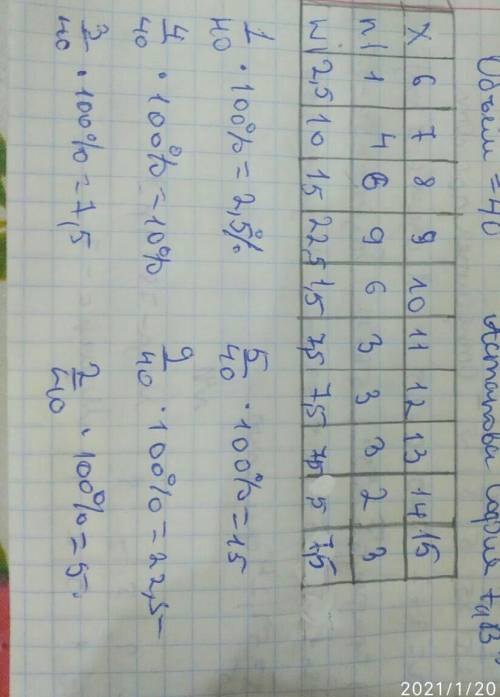 Объем = 40
X 6 7 8 9 10 11 12 13 14 15
n/ 1 4 6 9 6 3 3 3 2 3
w/ 2,5 10 15 22,5 1,5 7,5 7,5 7,5 5 7,5
1/40 · 100% = 2,5% 5/40 · 100% = 15
4/40 · 100% = 10% 9/40 · 100% = 22,5
3/40 · 100% = 7,5 2/40 · 100% = 5
2021/1/20